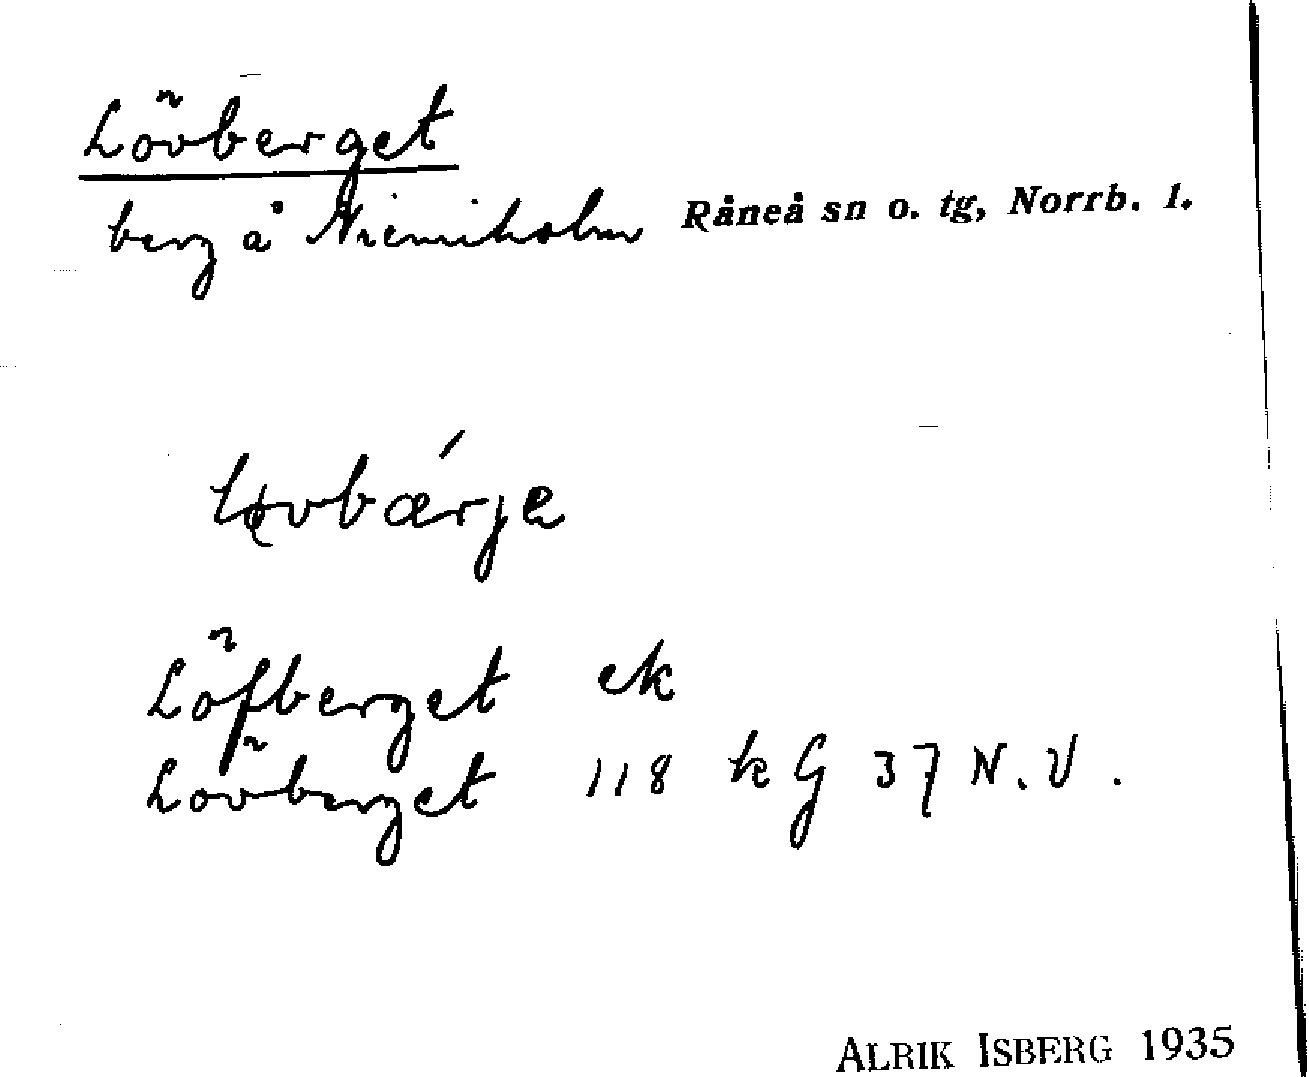 Lövberget
berg å Niemiholm Råneå sn o. tg, Norrb. l.
Löfberget ek
Lövberget 118 kG 37 N.V.
ALRIK ISBERG 1935